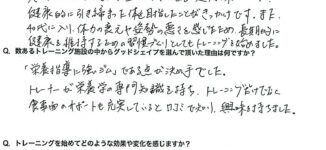 健康的に引き締まった体を目指したことがきっかけです。また、
40代に入り、体力の衰えや姿勢の悪さも感じたため、長期的に
健康を維持するための習慣づくりとしてもトレーニングを始めました。
Q、数あるトレーニング施設の中からグッドシェイプを選んで頂いた理由は何ですか？
「栄養指導に強いジム」である点が決め手でした。
トレーナーが栄養学の専門知識を持ち、トレーニングだけでなく
食事面のサポートも充実していると口コミで知り、興味を持ちました。
Q、トレーニングを始めてどのような効果や変化を感じますか？